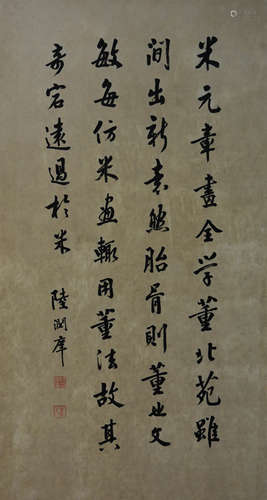 米元章畫全学董北苑雖
间出新意然胎骨則董也文
敏每仿米畫輒用董法故其
奇宕遠過於米
陸潤庠